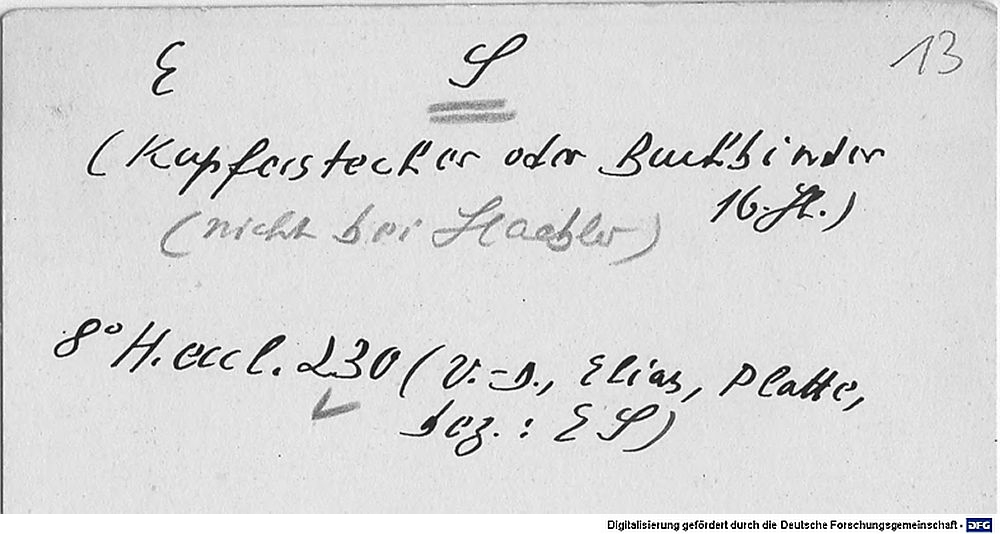 E S 13
(Kupferstecher oder Buchbinder
16. Jh.)
(nicht bei Haebler)
8° H.eccl. 230 (V.-D., Elias, Platte,
bez.: E S)
Digitalisierung gefördert durch die Deutsche Forschungsgemeinschaft - DFG